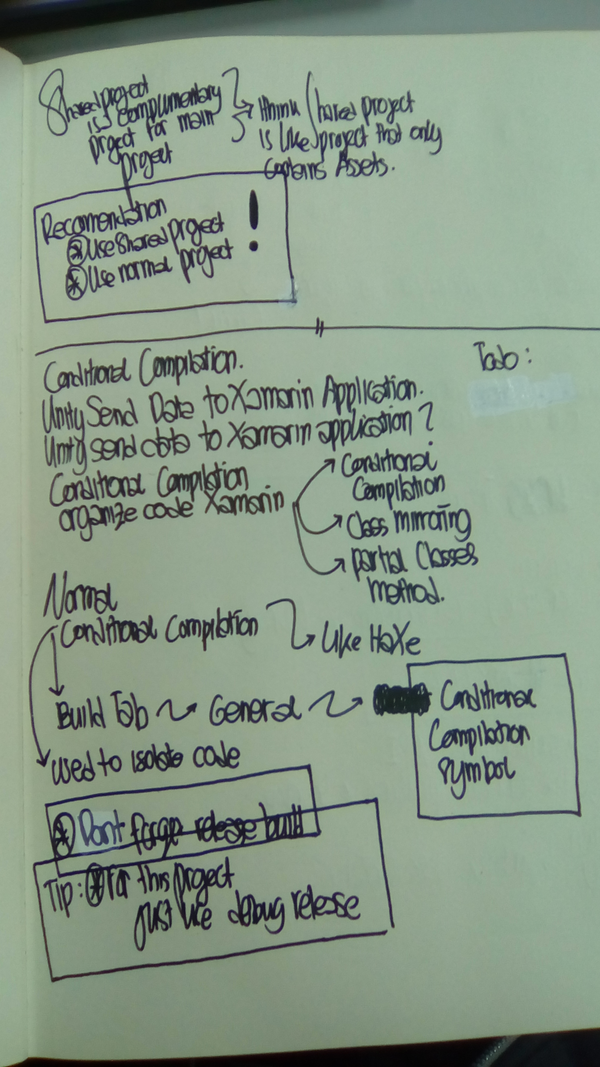 Shared project
is a complimentary
project for main
project
Hmmm Shared project
is like project that only
contains Assets.
Recomendation
* Use shared project
* Use normal project
!
Conditional Compilation.
Unity Send Data to Xamarin Application.
Unity send data to Xamarin application?
Conditional Compilation
organize code Xamarin
Conditional
Compilation
Class mirroring
Partial Classes
Method.
Normal
Conditional Compilation
Like HaXe
Build Tab
General
Conditional
Compilation
symbol
Used to isolate code
* Dont forge release build
Tip: * For this project
just use debug release